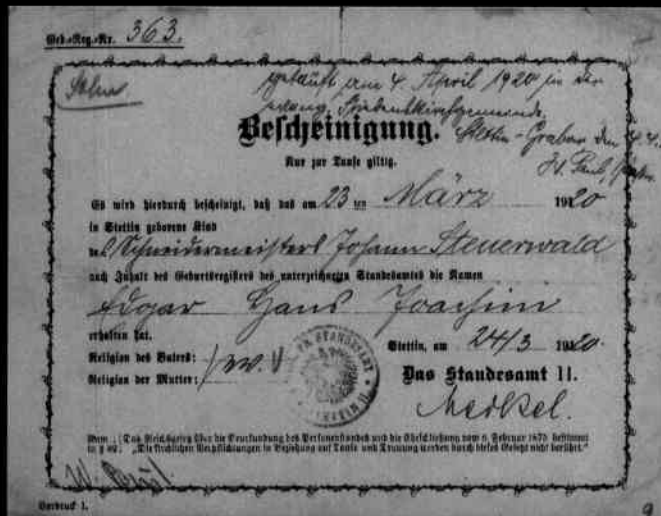 Geb.-Reg.-Nr. 363.
Sohn
getauft am 4. April 1920 in der
evang. Friedenskirchgemeinde,
Bescheinigung. Stettin-Grabow den 4.4.
Nur zur Taufe giltig.
Es wird hierdurch bescheinigt, daß das am 23 ten März 1920
in Stettin geborene Kind
des Schneidermeisters Johann Steuerwald
nach Inhalt des Geburtsregisters des unterzeichneten Standesamtes die Namen
Edgar Hans Joachim
erhalten hat.
Religion des Vaters:
Religion der Mutter:
Stettin, am 24/3 1920.
Das Standesamt II.
Merkel.
Das Reichsgesetz über die Beurkundung des Personenstandes und die Eheschließung vom 6. Februar 1875 bestimmt
in § 82: „Die kirchlichen Verpflichtungen in Beziehung auf Taufe und Trauung werden durch dieses Gesetz nicht berührt."
Vordruck I.
9